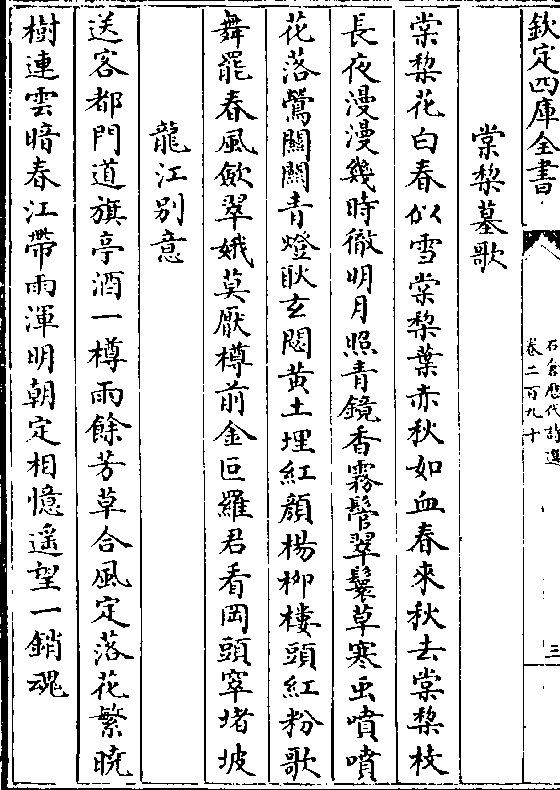 欽定四庫全書
石倉歷代詩選
卷二百九十
三
棠梨墓歌
棠梨花白春似雪棠梨葉赤秋如血春來秋去棠梨枝
長夜漫漫幾時徹明月照青鏡香霧鬢翠鬟草寒虫嘖嘖
花落鶯關關青燈耿玄閟黄土埋紅顔楊柳樓頭紅粉歌
舞罷春風歛翠娥莫厭樽前金叵羅君看岡頭窣堵坡
龍江别意
送客都門道旗亭酒一樽雨餘芳草合風定落花繁曉
樹連雲暗春江帶雨渾明朝定相憶遥望一銷魂